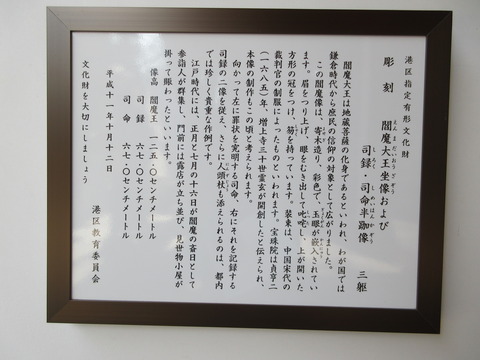 港区指定有形文化財
彫刻 閻魔大王坐像および
えんまだいおうざぞう
司録 司命半跏像 三躯
しろく しめいはんかぞう
閻魔大王は地蔵菩薩の化身であるといわれ、わが国では
鎌倉時代から庶民の信仰の対象として広がりました。
この閻魔像は、寄木造り、彩色で、玉眼が嵌入されてい
ます。眉をつり上げ、眼をむき出して叱咤し、上が開いた
方形の冠をつけ、笏を持っています。装束は、中国宋代の
裁判官の制服によったものといわれます。宝珠院は貞享二
(一六八五)年、増上寺三十世霊玄が開創したと伝えられ、
本像の制作もこの頃と考えられます。
向かって左に罪状を究明する司命、右にそれを記録する
司録の二像を伴い、さらに人頭杖も添えられるのは、都内
では珍しく貴重な作例です。
江戸時代には、正月と七月の十六日が閻魔の斎日として
参詣人が群集し、門前には露店が立ち並び、見世物小屋が
掛って賑わったといいます。
像高 閻魔王 一二五・〇センチメートル
司録 六七・〇センチメートル
司命 六七・〇センチメートル
平成十一年十月十二日
港区教育委員会
文化財を大切にしましょう